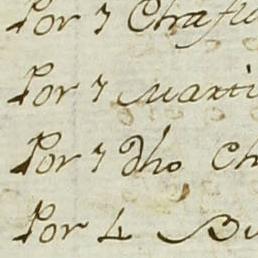 Por 7 Chafu
Por 7 Marti
Por 7 Dho Ch
Por 4 Bu